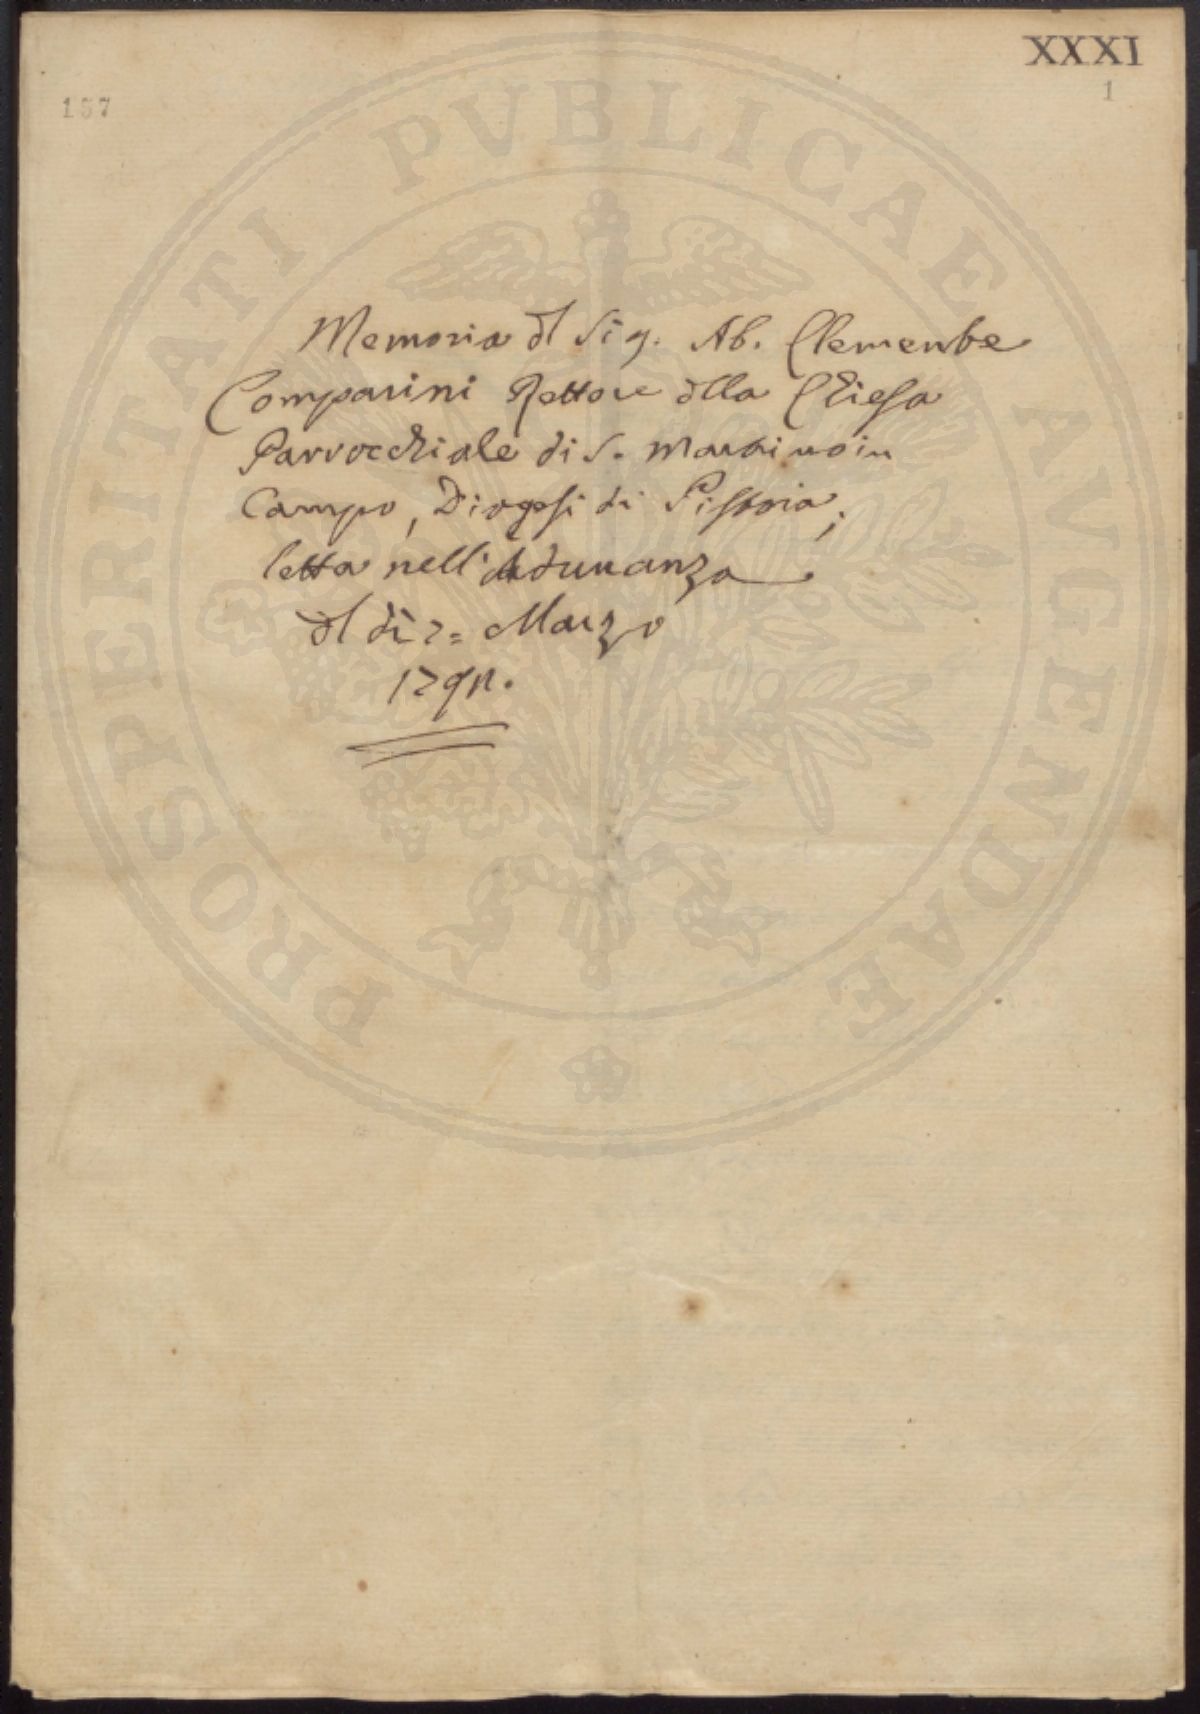 XXXI
1
137
PROSPERITATI PVBLICAE AVGENDAE
Memoria dl Sig. Ab. Clemente
Comparini Rettore dlla Chiesa
Parrocchiale di S. Martino in
Campo, Diogesi di Pistoia;
letta nell' Adunanza
dl dì 2= Marzo